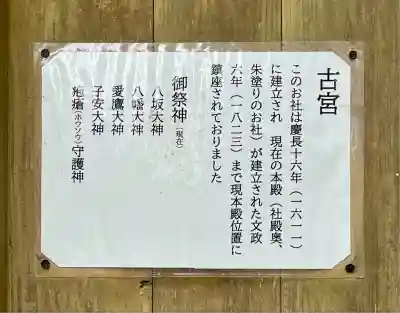 古宮
このお社は慶長十六年(一六一一)
に建立され　現在の本殿(社殿奥、
朱塗りのお社)が建立された文政
六年(一八二三)まで現本殿位置に
鎮座されておりました
御祭神(現在)
八坂大神
八幡大神
愛鷹大神
子安大神
疱瘡(ホウソウ)守護神